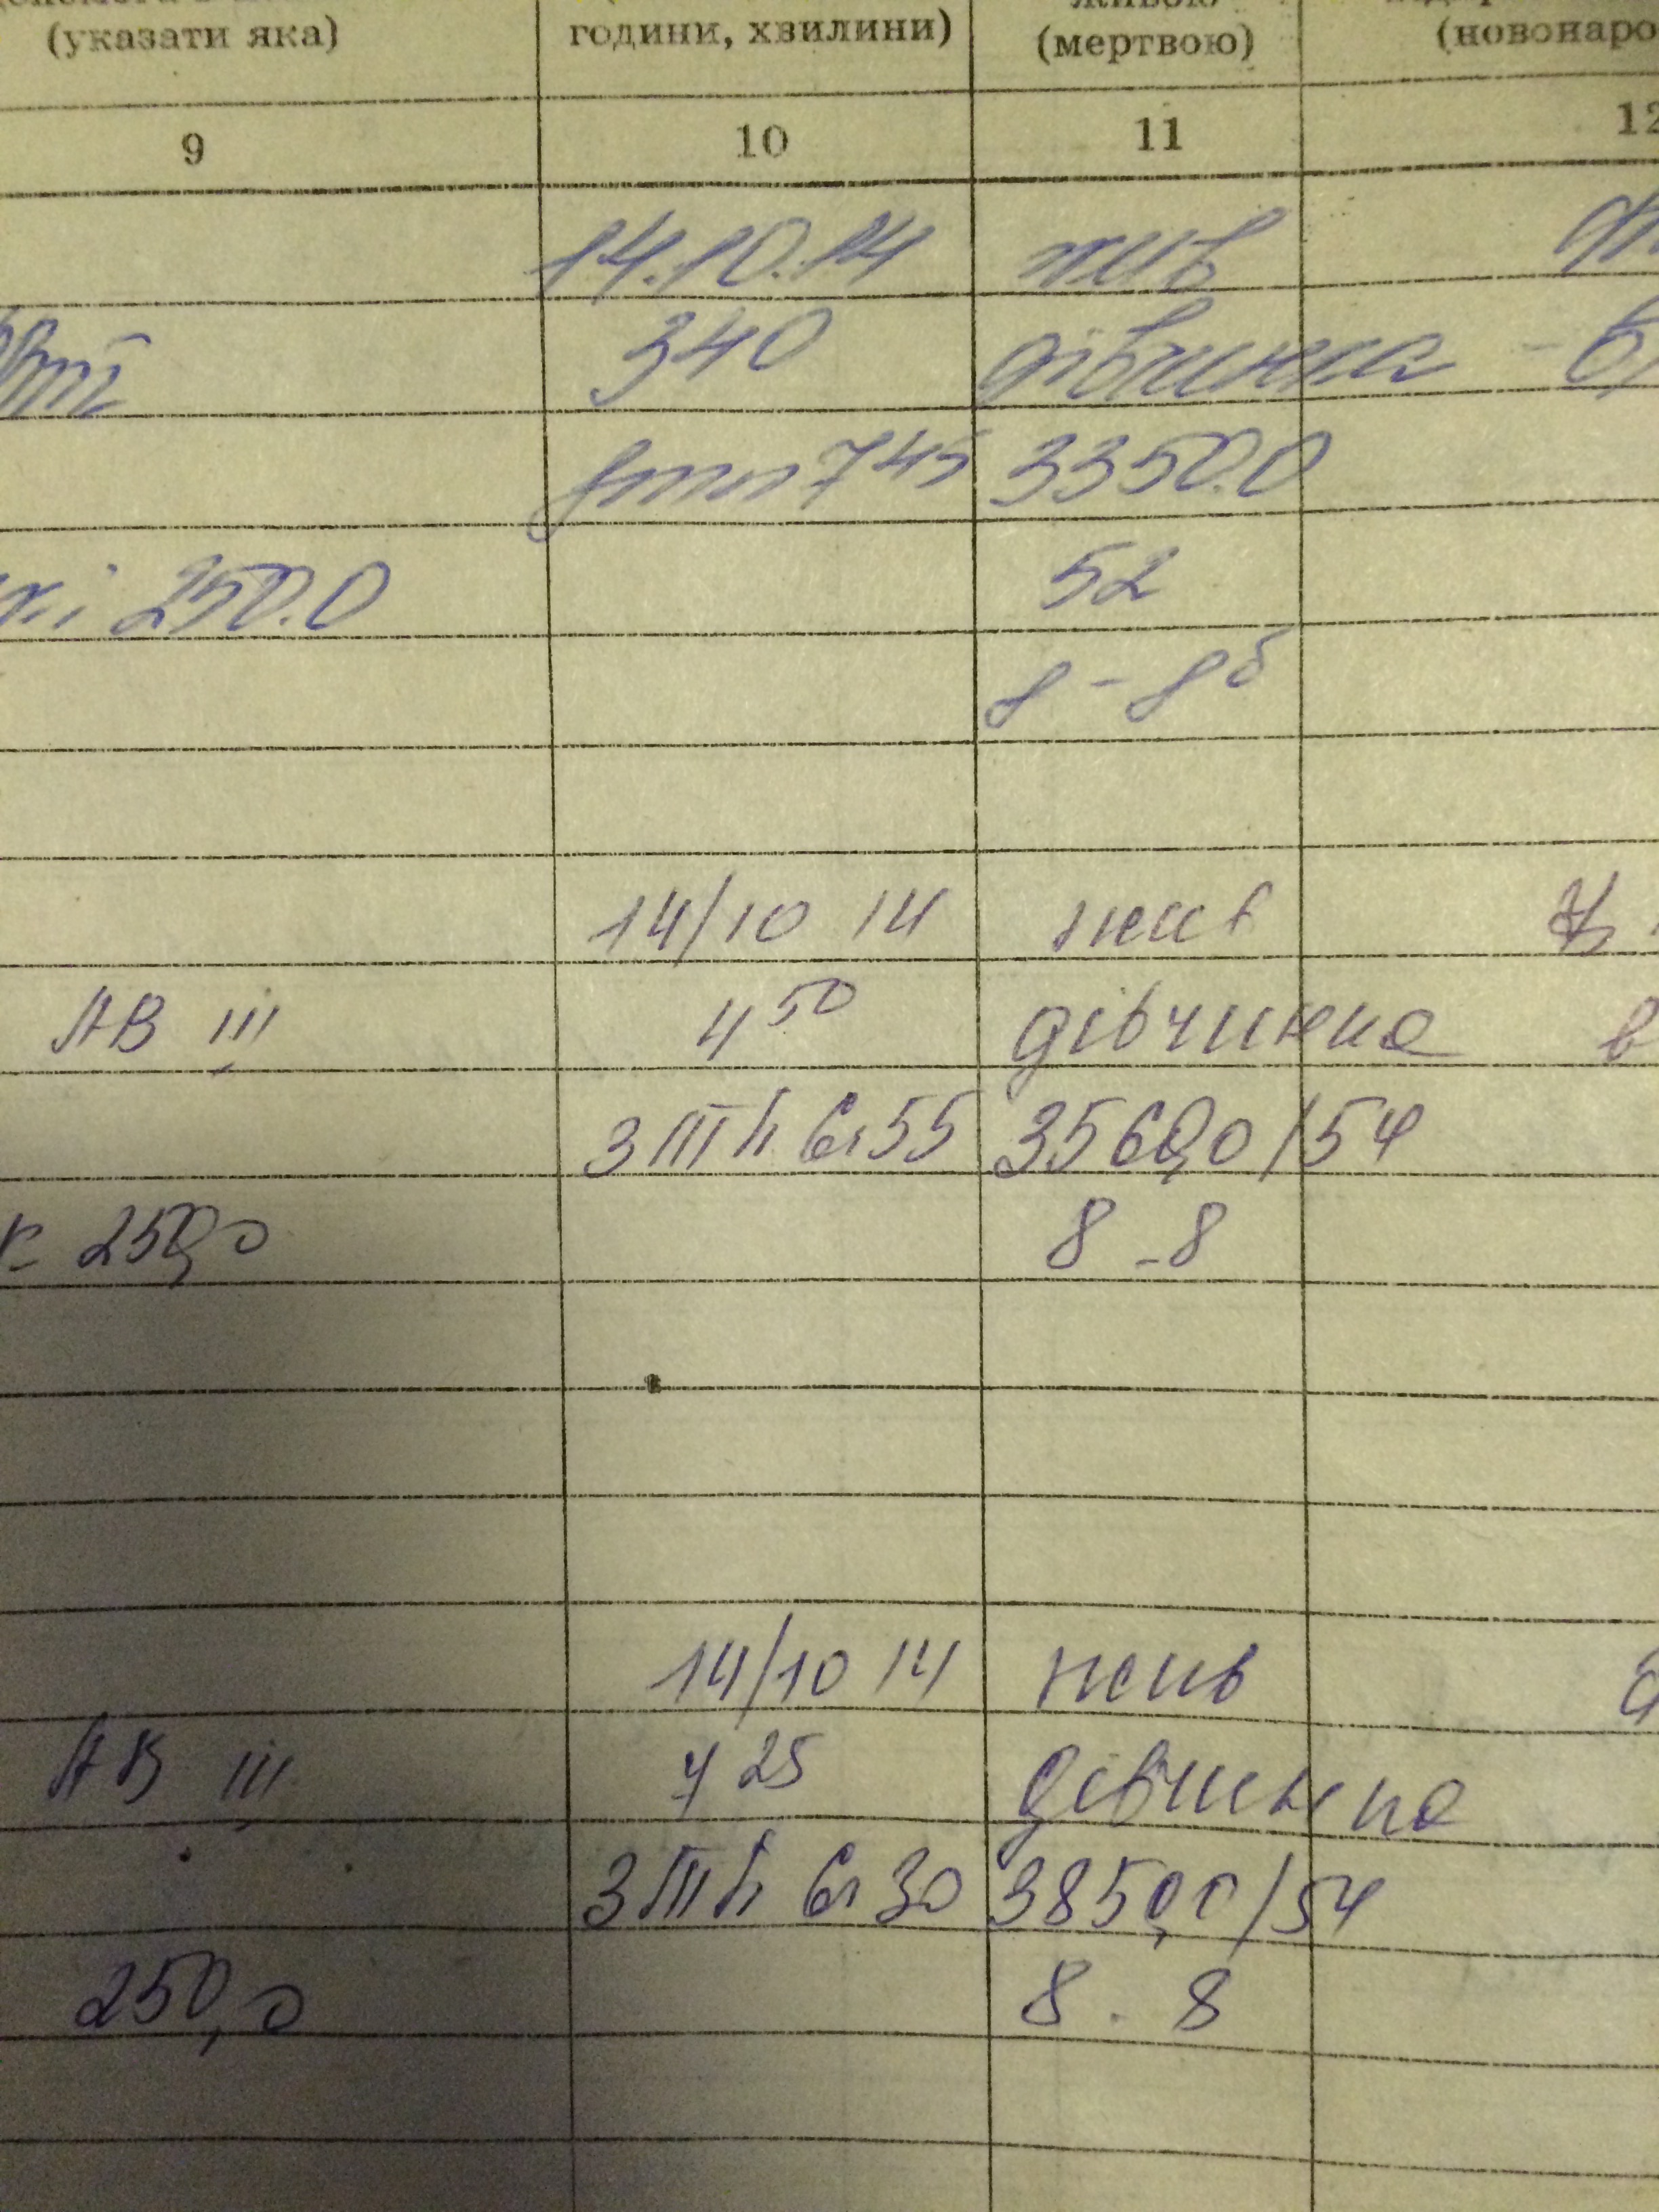 (указати яка) години, хвилини) (мертвою) (новонаро
9 10 11 12
14.10.14 жив
340 дівчинка
745 3350.0
250.0 52
8 - 8 б
14/10 14 жив
АВ III 4 50 дівчинка в
3 III п 6г 55 3560,0 / 54
250,0 8 - 8
14/10 14 жив
АВ III 7 25 дівчинка
3 III п 6г 30 3850,0 / 54
250,0 8 . 8